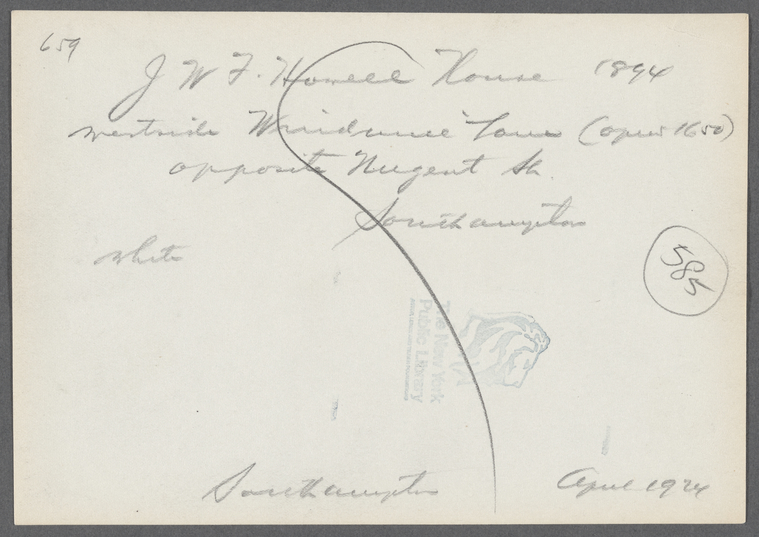 659
J W F. Howell House 1894
westside Windmill Lane (open 1650)
opposite Nugent St.
Southampton
white
585
The New York
Public Library
Southampton April 1924